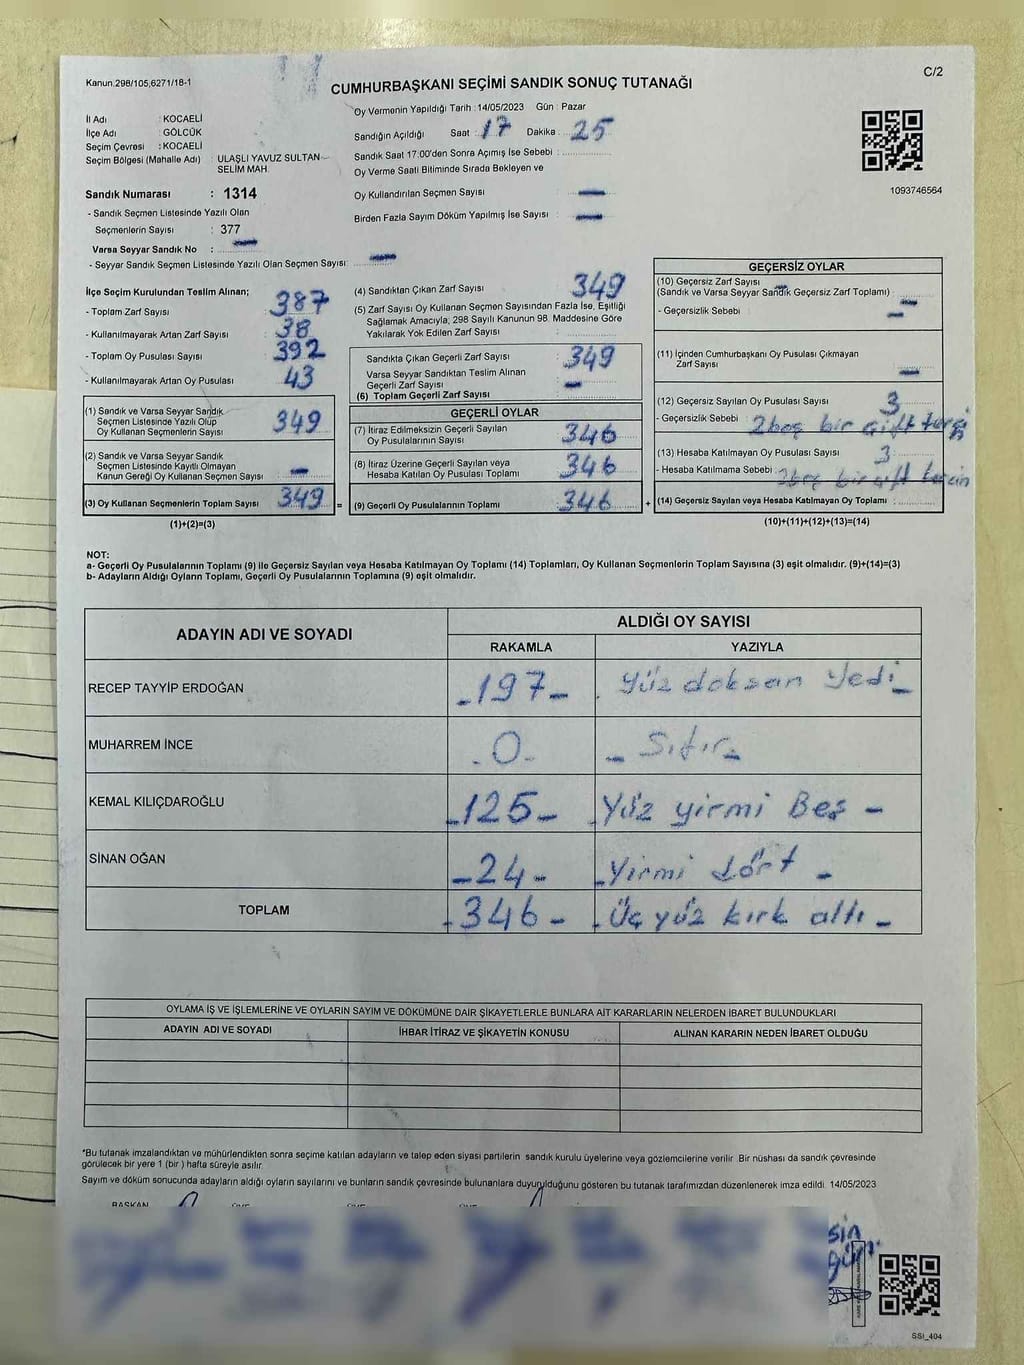 Kanun.298/105,6271/18-1
C/2
CUMHURBAŞKANI SEÇİMİ SANDIK SONUÇ TUTANAĞI
İl Adı : KOCAELİ
İlçe Adı : GÖLCÜK
Seçim Çevresi : KOCAELİ
Seçim Bölgesi (Mahalle Adı) : ULAŞLI YAVUZ SULTAN
SELİM MAH.
Sandık Numarası : 1314
- Sandık Seçmen Listesinde Yazılı Olan
Seçmenlerin Sayısı : 377
Varsa Seyyar Sandık No : —
- Seyyar Sandık Seçmen Listesinde Yazılı Olan Seçmen Sayısı: —
Oy Vermenin Yapıldığı Tarih : 14/05/2023 Gün : Pazar
Sandığın Açıldığı Saat : 17 Dakika : 25
Sandık Saat 17:00'den Sonra Açımış İse Sebebi :
Oy Verme Saati Bitiminde Sırada Bekleyen ve
Oy Kullandırılan Seçmen Sayısı : —
Birden Fazla Sayım Döküm Yapılmış İse Sayısı : —
1093746564
İlçe Seçim Kurulundan Teslim Alınan;
- Toplam Zarf Sayısı : 387
- Kullanılmayarak Artan Zarf Sayısı : 38
- Toplam Oy Pusulası Sayısı : 392
- Kullanılmayarak Artan Oy Pusulası : 43
(1) Sandık ve Varsa Seyyar Sandık
Seçmen Listesinde Yazılı Olup
Oy Kullanan Seçmenlerin Sayısı : 349
(2) Sandık ve Varsa Seyyar Sandık
Seçmen Listesinde Kayıtlı Olmayan
Kanun Gereği Oy Kullanan Seçmen Sayısı : —
(3) Oy Kullanan Seçmenlerin Toplam Sayısı : 349 =
(1)+(2)=(3)
(4) Sandıktan Çıkan Zarf Sayısı : 349
(5) Zarf Sayısı Oy Kullanan Seçmen Sayısından Fazla İse, Eşitliği
Sağlamak Amacıyla, 298 Sayılı Kanunun 98. Maddesine Göre
Yakılarak Yok Edilen Zarf Sayısı :
Sandıkta Çıkan Geçerli Zarf Sayısı : 349
Varsa Seyyar Sandıktan Teslim Alınan
Geçerli Zarf Sayısı : —
(6) Toplam Geçerli Zarf Sayısı :
GEÇERLİ OYLAR
(7) İtiraz Edilmeksizin Geçerli Sayılan
Oy Pusulalarının Sayısı : 346
(8) İtiraz Üzerine Geçerli Sayılan veya
Hesaba Katılan Oy Pusulası Toplamı : 346
(9) Geçerli Oy Pusulalarının Toplamı : 346 +
GEÇERSİZ OYLAR
(10) Geçersiz Zarf Sayısı
(Sandık ve Varsa Seyyar Sandık Geçersiz Zarf Toplamı) : —
- Geçersizlik Sebebi : —
(11) İçinden Cumhurbaşkanı Oy Pusulası Çıkmayan
Zarf Sayısı : —
(12) Geçersiz Sayılan Oy Pusulası Sayısı : 3
- Geçersizlik Sebebi : 2 boş bir çift
(13) Hesaba Katılmayan Oy Pusulası Sayısı : 3
- Hesaba Katılmama Sebebi : 2 boş bir çift
(14) Geçersiz Sayılan veya Hesaba Katılmayan Oy Toplamı :
(10)+(11)+(12)+(13)=(14)
NOT:
a- Geçerli Oy Pusulalarının Toplamı (9) ile Geçersiz Sayılan veya Hesaba Katılmayan Oy Toplamı (14) Toplamları, Oy Kullanan Seçmenlerin Toplam Sayısına (3) eşit olmalıdır. (9)+(14)=(3)
b- Adayların Aldığı Oyların Toplamı, Geçerli Oy Pusulalarının Toplamına (9) eşit olmalıdır.
ADAYIN ADI VE SOYADI
ALDIĞI OY SAYISI
RAKAMLA YAZIYLA
RECEP TAYYİP ERDOĞAN -197- Yüz doksan Yedi -
MUHARREM İNCE -0- - Sıfır -
KEMAL KILIÇDAROĞLU -125- -Yüz yirmi Beş -
SİNAN OĞAN -24- -Yirmi dört -
TOPLAM -346- -Üç yüz kırk altı -
OYLAMA İŞ VE İŞLEMLERİNE VE OYLARIN SAYIM VE DÖKÜMÜNE DAİR ŞİKAYETLERLE BUNLARA AİT KARARLARIN NELERDEN İBARET BULUNDUKLARI
ADAYIN ADI VE SOYADI İHBAR İTİRAZ VE ŞİKAYETİN KONUSU ALINAN KARARIN NEDEN İBARET OLDUĞU
*Bu tutanak imzalandıktan ve mühürlendikten sonra seçime katılan adayların ve talep eden siyasi partilerin sandık kurulu üyelerine veya gözlemcilerine verilir. Bir nüshası da sandık çevresinde
görülecek bir yere 1 (bir ) hafta süreyle asılır.
Sayım ve döküm sonucunda adayların aldığı oyların sayılarını ve bunların sandık çevresinde bulunanlara duyurulduğunu gösteren bu tutanak tarafımızdan düzenlenerek imza edildi. 14/05/2023
BAŞKAN ÜYE ÜYE ÜYE
SSI_404